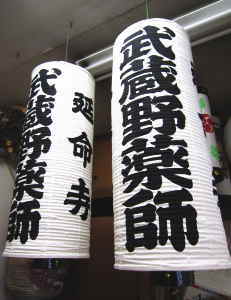 武蔵野薬師
延命寺
武蔵野薬師